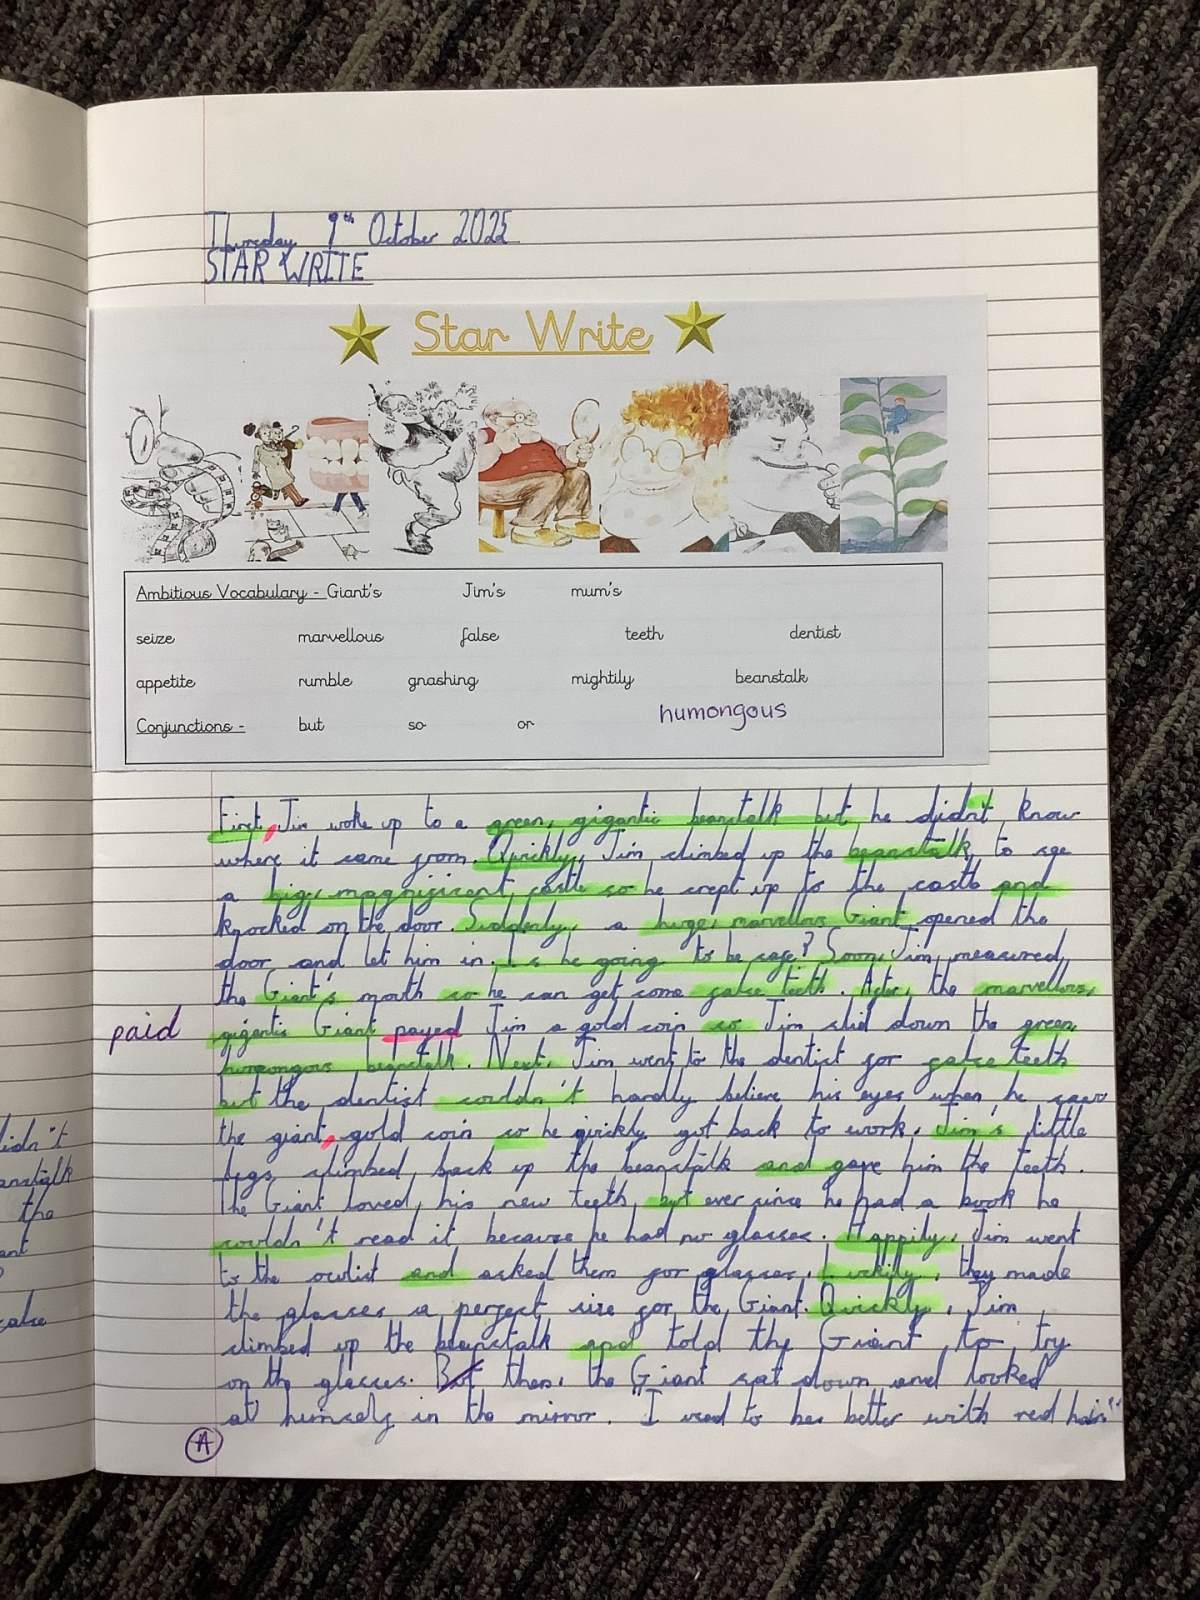 Thursday 9th October 2025
STAR WRITE
Star Write
Ambitious Vocabulary - Giant's Jim's mum's
seize marvellous false teeth dentist
appetite rumble gnashing mightily beanstalk
Conjunctions - but so or humongous
First, Jim woke up to a green, gigantic beanstalk but he didn't know
where it came from. Quickly, Jim climbed up the beanstalk to see
a big, magnificent castle so he crept up to the castle and
knocked on the door. Suddenly, a huge, marvellous Giant opened the
door and let him in. Is he going to be safe? Soon, Jim measured
the Giant's mouth so he can get some false teeth. After, the marvellous,
paid gigantic Giant payed Jim a gold coin so Jim slid down the green,
humongous beanstalk. Next, Jim went to the dentist for false teeth
but the dentist couldn't hardly believe his eyes when he saw
the giant, gold coin so he quickly got back to work. Jim's little
legs climbed back up the beanstalk and gave him the teeth.
The Giant loved his new teeth but ever since he had a book he
couldn't read it because he had no glasses. Happily, Jim went
to the oculist and asked them for glasses. Luckily, they made
the glasses a perfect size for the Giant. Quickly, Jim
climbed up the beanstalk and told the Giant to try
on the glasses. But then, the Giant sat down and looked
at himself in the mirror. "I used to be better with red hair"
A
didn't
beanstalk
the